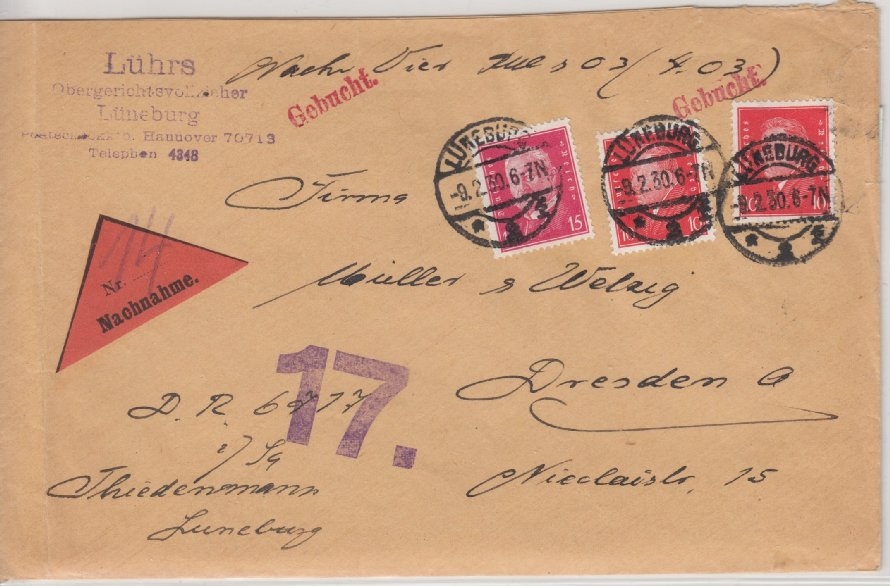 Lührs
Obergerichtsvollzieher
Lüneburg
Postscheckkto. Hannover 70713
Telephon 4348
Nachn. Vier 03 (4.03)
Gebucht.
Gebucht.
LÜNEBURG
-9.2.30.6-7N
* 2 *
15
LÜNEBURG
-9.2.30.6-7N
* 2 *
10 10
LÜNEBURG
-9.2.30.6-7N
* 2 *
10 10
Firma
Müller & Welzig
Dresden A
Nicolaistr. 15
Nr. 14
Nachnahme.
17.
D. R. 6977
i/Sa
Thiedensmann
Luneburg